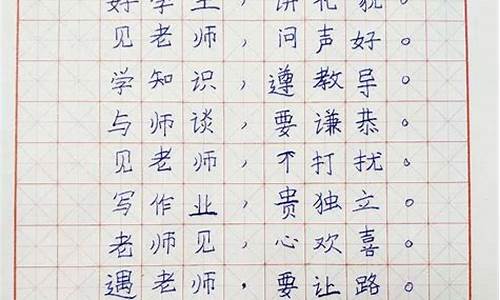 好学生，讲礼貌。
见老师，问声好。
学知识，遵教导。
与师谈，要谦恭。
见老师，不打扰。
写作业，贵独立。
老师见，心欢喜。
遇老师，要让路。